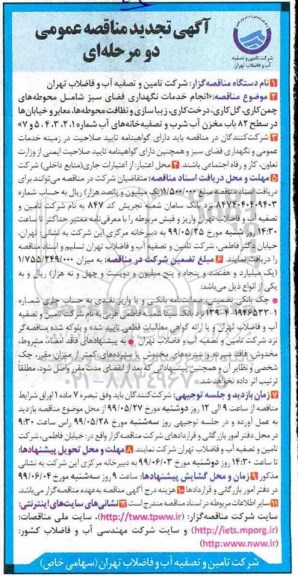 آگهی تجدید مناقصه عمومی
دو مرحله‌ای
شرکت تامین و تصفیه
آب و فاضلاب تهران
۱ نام دستگاه مناقصه‌گزار: شرکت تامین و تصفیه آب و فاضلاب تهران
۲ موضوع مناقصه: «انجام خدمات نگهداری فضای سبز شامل محوطه‌های
چمن‌کاری، گل‌کاری، درخت‌کاری، زیباسازی و نظافت محوطه‌ها، معابر و خیابان‌ها
در سطح ۸۷ باب مخزن آب شرب و تصفیه‌خانه‌های آب شماره ۱، ۲، ۳، ۴، ۵ و ۷»
۳ شرکت‌کنندگان در مناقصه باید دارای گواهینامه تایید صلاحیت در زمینه خدمات
عمومی و نگهداری فضای سبز و همچنین دارای گواهینامه تایید صلاحیت ایمنی از وزارت
تعاون، کار و رفاه اجتماعی باشند. ۴ محل اعتبار: از اعتبارات جاری (منابع داخلی) شرکت
۵ مهلت و محل دریافت اسناد مناقصه: متقاضیان شرکت در مناقصه می‌توانند برای
دریافت اسناد مناقصه مبلغ ۱/۵۰۰/۰۰۰ (یک میلیون و پانصد هزار) ریال به حساب شماره
بانک سامان شعبه تجریش کد ۸۴۷ به نام شرکت تامین و
تصفیه آب و فاضلاب تهران واریز و فیش مربوطه را با معرفی‌نامه معتبر حداکثر تا ساعت
۱۴:۳۰ روز شنبه مورخ ۹۹/۰۵/۲۵ به دبیرخانه مرکزی این شرکت به نشانی تهران،
خیابان دکتر فاطمی، شرکت تامین و تصفیه آب و فاضلاب تهران تسلیم و اسناد مناقصه
را دریافت نمایند. ۶ مبلغ تضمین شرکت در مناقصه: به میزان ۱/۷۵۵/۲۴۹/۰۰۰
(یک میلیارد و هفتصد و پنجاه و پنج میلیون و دویست و چهل و نه هزار) ریال و به
یکی از انواع ذیل می‌باشد:
چک بانکی تضمینی، ضمانت‌نامه بانکی و یا واریز نقدی به حساب جاری شماره
نزد بانک سینا شعبه فاطمی غربی به نام شرکت تامین و تصفیه
آب و فاضلاب تهران و یا ارائه گواهی مطالبات قطعی تایید شده و بلوکه شده مناقصه‌گر
نزد شرکت تامین و تصفیه آب و فاضلاب تهران به پیشنهادهای فاقد امضاء، مشروط،
مخدوش، فاقد سپرده و سپرده‌های مخدوش یا سپرده‌های کمتر از میزان مقرر، چک
شخصی و نظایر آن و همچنین پیشنهاداتی که بعد از انقضای مدت مقرر واصل شود، مطلقاً
ترتیب اثر داده نخواهد شد.
۷ زمان بازدید و جلسه توجیهی: شرکت‌کنندگان باید وفق تبصره ۷ ماده ۱ اوراق شرایط
مناقصه از ساعت ۹ الی ۱۲ روز دوشنبه مورخ ۹۹/۰۵/۲۷ از محل موضوع مناقصه بازدید
به عمل آورده و در جلسه توجیهی روز سه‌شنبه مورخ ۹۹/۰۵/۲۸ راس ساعت ۹:۳۰
در محل دفتر امور بازرگانی و قراردادهای شرکت مناقصه‌گزار واقع در: خیابان فاطمی، شرکت
تامین و تصفیه آب و فاضلاب تهران شرکت نمایند. ۸ مهلت و محل تحویل پیشنهادها:
تا ساعت ۱۴:۳۰ روز دوشنبه مورخ ۹۹/۰۶/۰۳ به دبیرخانه مرکزی این شرکت به نشانی
مذکور ۹ زمان و محل گشایش پیشنهادها: ساعت ۹ روز سه‌شنبه مورخ ۹۹/۰۶/۰۴
در دفتر امور بازرگانی و قراردادها ۱۰ هزینه درج آگهی مناقصه به‌عهده مناقصه‌گزار می‌باشد.
۱۱ سایر اطلاعات مربوطه در اسناد مناقصه مندرج است. نشانی‌های سایت‌های اینترنتی:
سایت شرکت مناقصه‌گزار: (http://tww.tpww.ir)، سایت ملی مناقصات:
(http://iets.mporg.ir) و سایت شرکت مهندسی آب و فاضلاب کشور:
(http://www.nww.ir)
شرکت تامین و تصفیه آب و فاضلاب تهران (سهامی خاص)